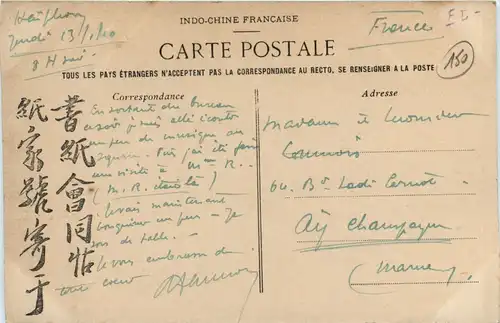 Haiphong
Jeudi 13/1/10
8 H soir
INDO-CHINE FRANCAISE
France
E I -
CARTE POSTALE
150
TOUS LES PAYS ÉTRANGERS N'ACCEPTENT PAS LA CORRESPONDANCE AU RECTO, SE RENSEIGNER A LA POSTE
Correspondance
En sortant du bureau
ce soir je suis allé écouter
un peu de musique au
square. Puis j'ai été faire
une visite à Mme R..
(M. R.
Je vais maintenant
bouquiner un peu - Je
sors de table. -
Je vous embrasse de
tout coeur
書紙會同帖
紙家號寄于
Adresse
Madame et Monsieur
60. Bd Sadi Carnot -
Aÿ Champagne
(Marne)